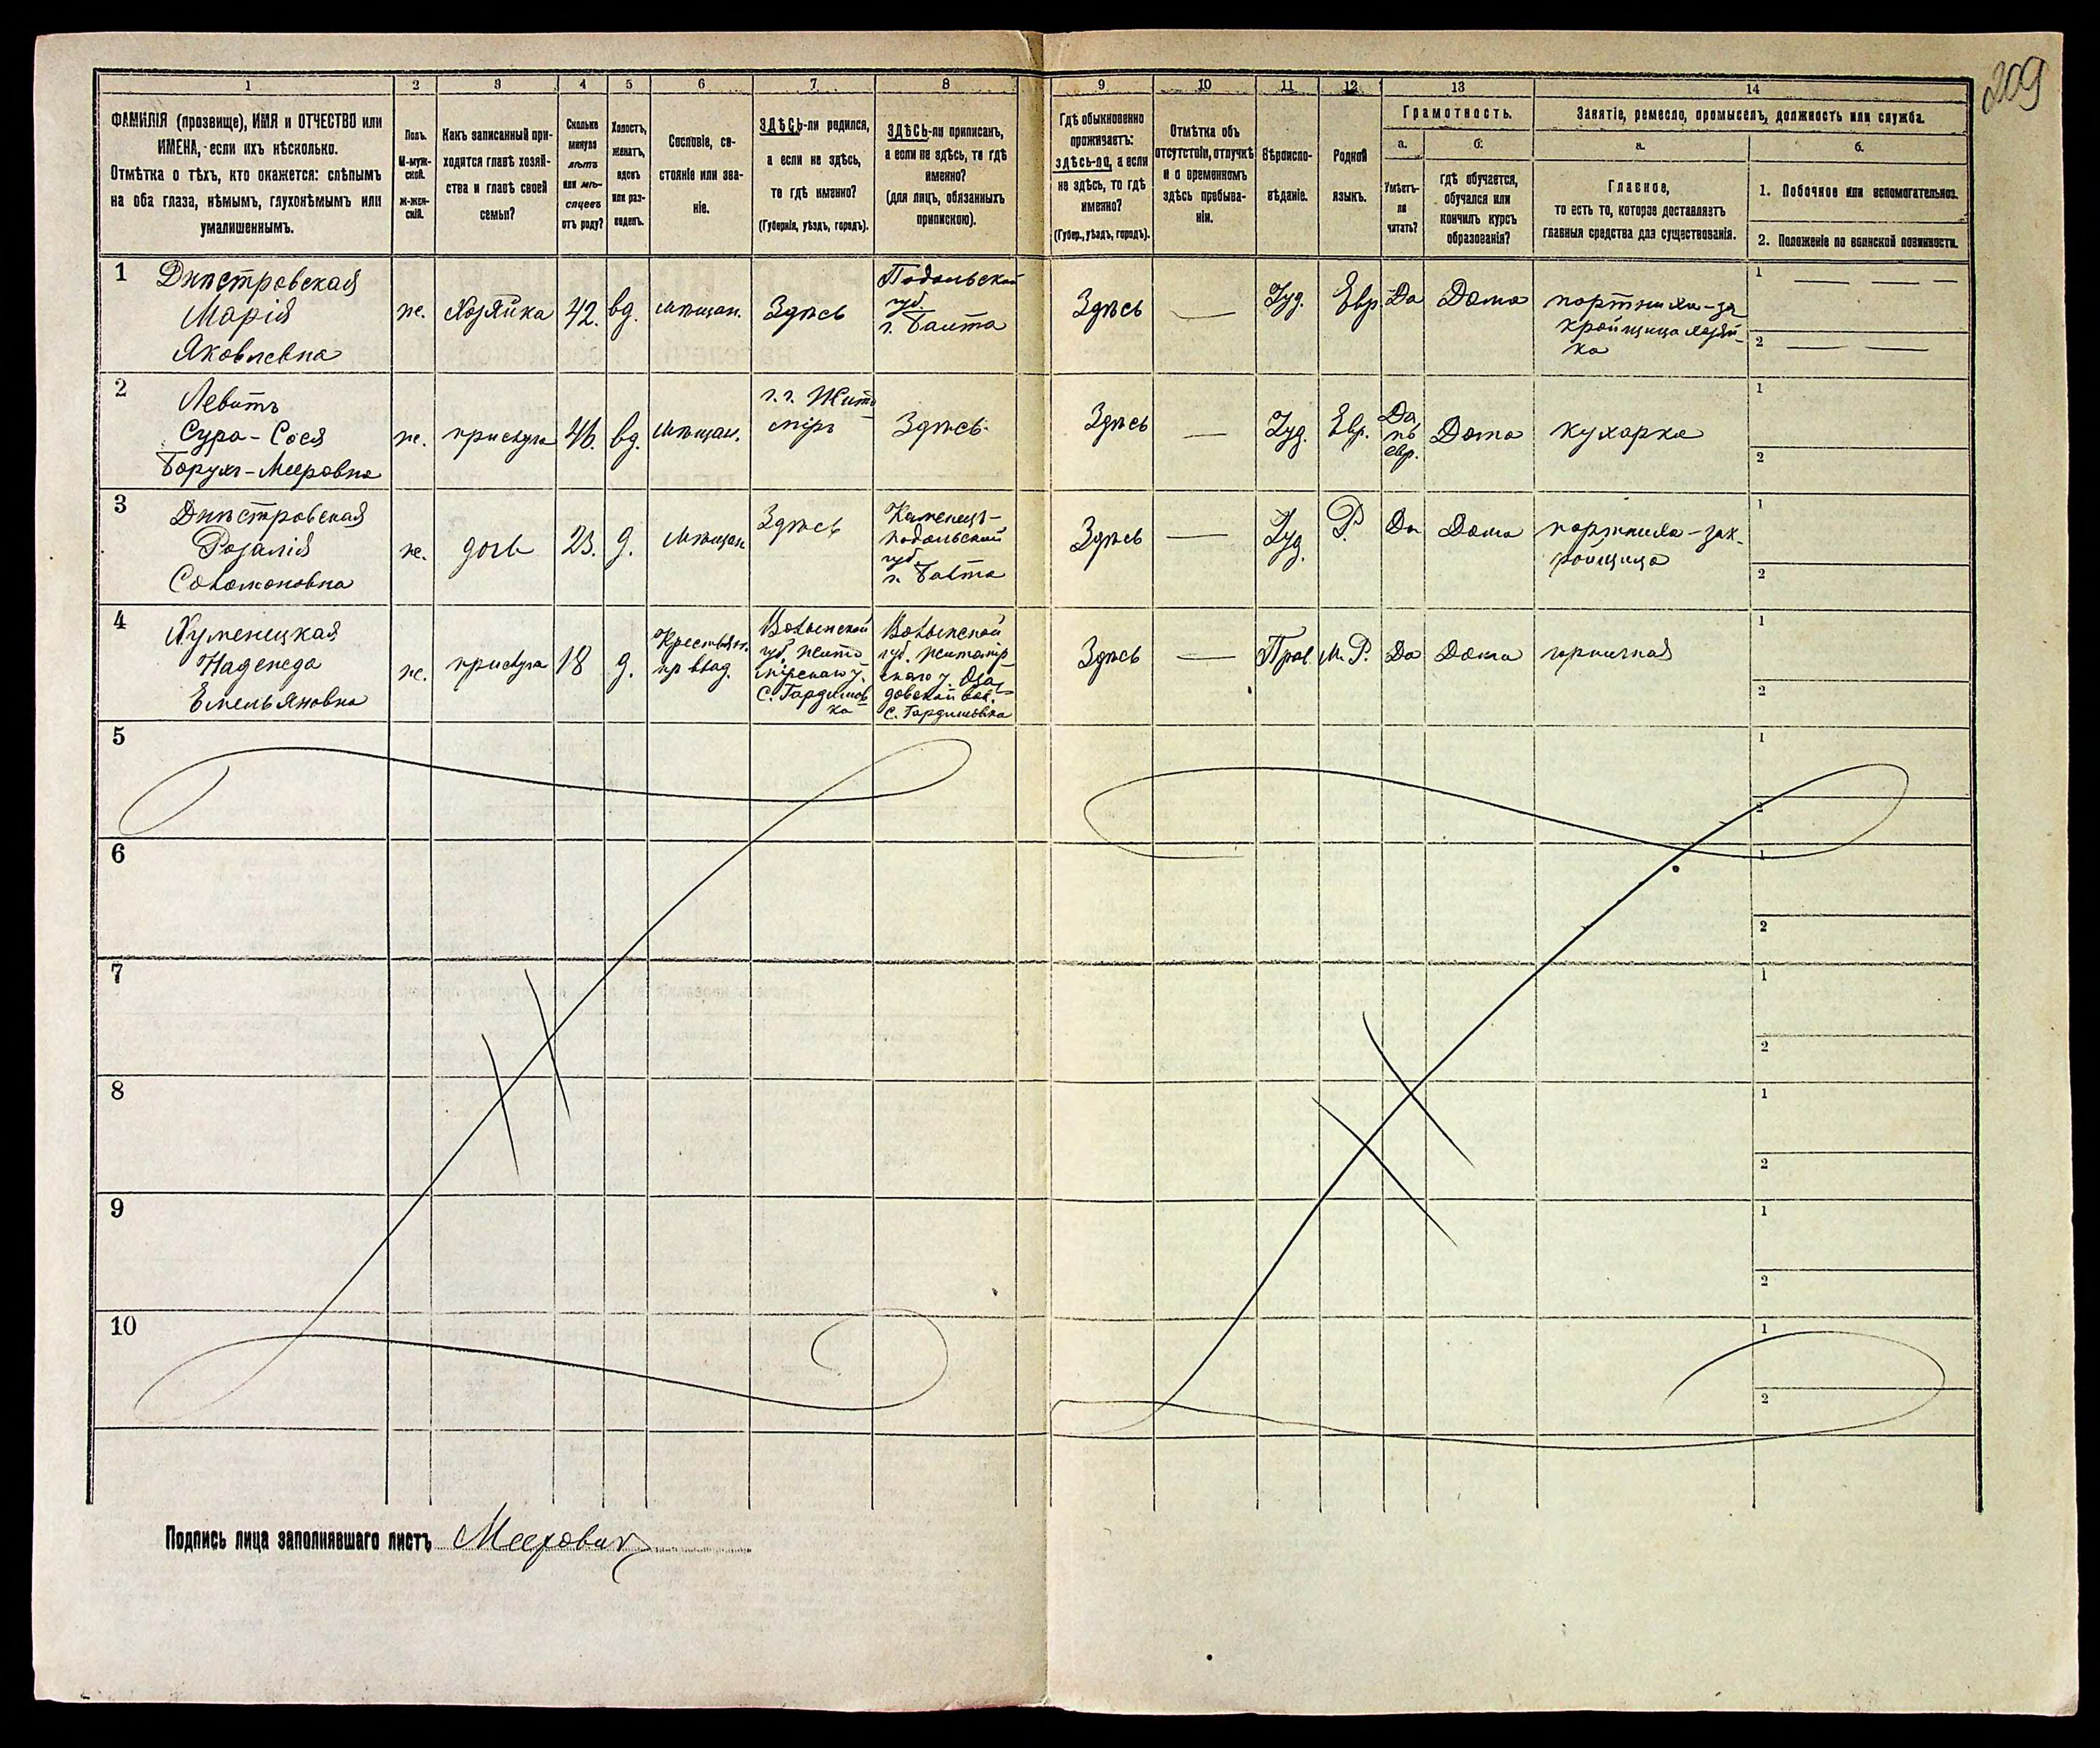 209
1
2
3
4
5
6
7
8
9
10
11
12
13
14
ФАМИЛІЯ (прозвище), ИМЯ и ОТЧЕСТВО или
ИМЕНА, если ихъ нѣсколько.
Отмѣтка о тѣхъ, кто окажется: слѣпымъ
на оба глаза, нѣмымъ, глухонѣмымъ или
умалишеннымъ.
Полъ.
М-муж-
ской.
ж-жен-
скій.
Какъ записанный при-
ходится главѣ хозяй-
ства и главѣ своей
семьи?
Сколько
минуло
лѣтъ
или мѣ-
сяцевъ
отъ роду?
Холостъ,
женатъ,
вдовъ
или раз-
веденъ.
Сословіе, со-
стояніе или зва-
ніе.
ЗДѢСЬ-ли родился,
а если не здѣсь,
то гдѣ именно?
(Губернія, уѣздъ, городъ).
ЗДѢСЬ-ли приписанъ,
а если не здѣсь, то гдѣ
именно?
(для лицъ, обязанныхъ
припискою).
Гдѣ обыкновенно
проживаетъ:
здѣсь-ли, а если
не здѣсь, то гдѣ
именно?
(Губер., уѣздъ, городъ).
Отмѣтка объ
отсутствіи, отлучкѣ
и о временномъ
здѣсь пребыва-
ніи.
Вѣроиспо-
вѣданіе.
Родной
языкъ.
Грамотность.
а.
Умѣетъ-
ли
читать?
б.
гдѣ обучается,
обучался или
кончилъ курсъ
образованія?
Занятіе, ремесло, промыселъ, должность или служба.
а.
Главное,
то есть то, которое доставляетъ
главныя средства для существованія.
б.
1. Побочное или вспомогательное.
2. Положеніе по воинской повинности.
1
Днѣстровская
Марія
Яковлевна
ж.
Хозяйка
42.
вд.
мѣщан.
Здѣсь
Подольской
губ.
г. Балта
Здѣсь
—
Іуд.
Евр.
Да
Дома
портниха-за
кройщица хозяй-
ка
1 — — —
2 — —
2
Левитъ
Сура-Сося
Борухъ-Мееровна
ж.
прислуга
46.
вд.
мѣщан.
г. г. Жито
міръ
Здѣсь
Здѣсь
—
Іуд.
Евр.
Да,
по
евр.
Дома
кухарка
1
2
3
Днѣстровская
Розалія
Соломоновна
ж.
дочь
23.
д.
мѣщан
Здѣсь
Каменецъ-
подольской
губ.
г. Балта
Здѣсь
—
Іуд.
Р.
Да
Дома
портниха-зак-
ройщица
1
2
4
Хуменецкая
Надежда
Емельяновна
ж.
прислуга
18
д.
Крестьян.
пр влад.
Волынской
губ. Жито
мірскаго у.
С. Гардишов
ка
Волынской
губ. житомір
скаго у.
вол.
С. Гардишовка
Здѣсь
—
Прав.
М. Р.
Да
Дома
горничная
1
2
5
1
2
6
1
2
7
1
2
8
1
2
9
1
2
10
1
2
Подпись лица заполнявшаго листъ Меерович